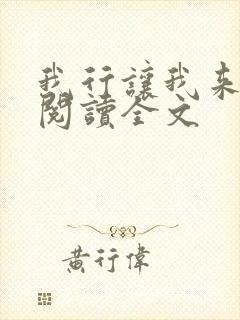 我行讓我來
閱讀全文
黃行偉